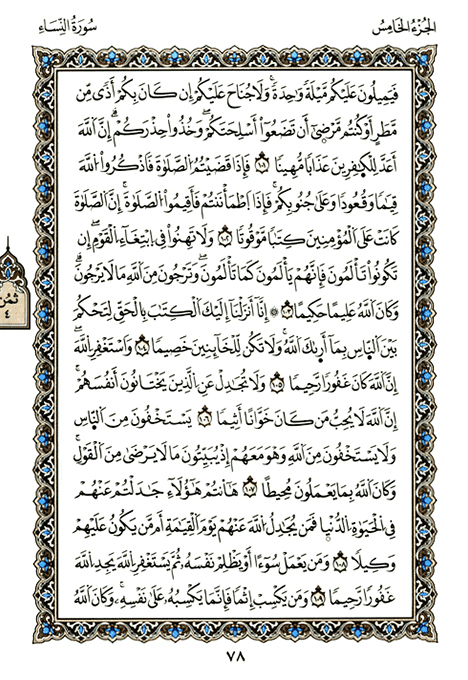 الجُزْءُ الخَامِسُ
سُورَةُ النِّسَاءِ
فَيَمِيلُونَ عَلَيْكُم مَّيْلَةً وَٰحِدَةً وَلَا جُنَاحَ عَلَيْكُمْ إِن كَانَ بِكُمْ أَذًى مِّن
مَّطَرٍ أَوْ كُنتُم مَّرْضَىٰٓ أَن تَضَعُوٓا۟ أَسْلِحَتَكُمْ وَخُذُوا۟ حِذْرَكُمْ إِنَّ ٱللَّهَ
أَعَدَّ لِلْكَٰفِرِينَ عَذَابًا مُّهِينًا ١٠١ فَإِذَا قَضَيْتُمُ ٱلصَّلَوٰةَ فَٱذْكُرُوا۟ ٱللَّهَ
قِيَٰمًا وَقُعُودًا وَعَلَىٰ جُنُوبِكُمْ فَإِذَا ٱطْمَأْنَنتُمْ فَأَقِيمُوا۟ ٱلصَّلَوٰةَ إِنَّ ٱلصَّلَوٰةَ
كَانَتْ عَلَى ٱلْمُؤْمِنِينَ كِتَٰبًا مَّوْقُوتًا ١٠٢ وَلَا تَهِنُوا۟ فِى ٱبْتِغَآءِ ٱلْقَوْمِ إِن
تَكُونُوا۟ تَأْلَمُونَ فَإِنَّهُمْ يَأْلَمُونَ كَمَا تَأْلَمُونَ وَتَرْجُونَ مِنَ ٱللَّهِ مَا لَا يَرْجُونَ
وَكَانَ ٱللَّهُ عَلِيمًا حَكِيمًا ١٠٣ ۞ إِنَّآ أَنزَلْنَآ إِلَيْكَ ٱلْكِتَٰبَ بِٱلْحَقِّ لِتَحْكُمَ
بَيْنَ ٱلنَّاسِ بِمَآ أَرَىٰكَ ٱللَّهُ وَلَا تَكُن لِّلْخَآئِنِينَ خَصِيمًا ١٠٤ وَٱسْتَغْفِرِ ٱللَّهَ
إِنَّ ٱللَّهَ كَانَ غَفُورًا رَّحِيمًا ١٠٥ وَلَا تُجَٰدِلْ عَنِ ٱلَّذِينَ يَخْتَانُونَ أَنفُسَهُمْ
إِنَّ ٱللَّهَ لَا يُحِبُّ مَن كَانَ خَوَّانًا أَثِيمًا ١٠٦ يَسْتَخْفُونَ مِنَ ٱلنَّاسِ
وَلَا يَسْتَخْفُونَ مِنَ ٱللَّهِ وَهُوَ مَعَهُمْ إِذْ يُبَيِّتُونَ مَا لَا يَرْضَىٰ مِنَ ٱلْقَوْلِ
وَكَانَ ٱللَّهُ بِمَا يَعْمَلُونَ مُحِيطًا ١٠٧ هَٰٓأَنتُمْ هَٰٓؤُلَآءِ جَٰدَلْتُمْ عَنْهُمْ
فِى ٱلْحَيَوٰةِ ٱلدُّنْيَا فَمَن يُجَٰدِلُ ٱللَّهَ عَنْهُمْ يَوْمَ ٱلْقِيَٰمَةِ أَم مَّن يَكُونُ عَلَيْهِمْ
وَكِيلًا ١٠٨ وَمَن يَعْمَلْ سُوٓءًا أَوْ يَظْلِمْ نَفْسَهُۥ ثُمَّ يَسْتَغْفِرِ ٱللَّهَ يَجِدِ ٱللَّهَ
غَفُورًا رَّحِيمًا ١٠٩ وَمَن يَكْسِبْ إِثْمًا فَإِنَّمَا يَكْسِبُهُۥ عَلَىٰ نَفْسِهِۦ وَكَانَ ٱللَّهُ
ثُمُن
٤
٧٨